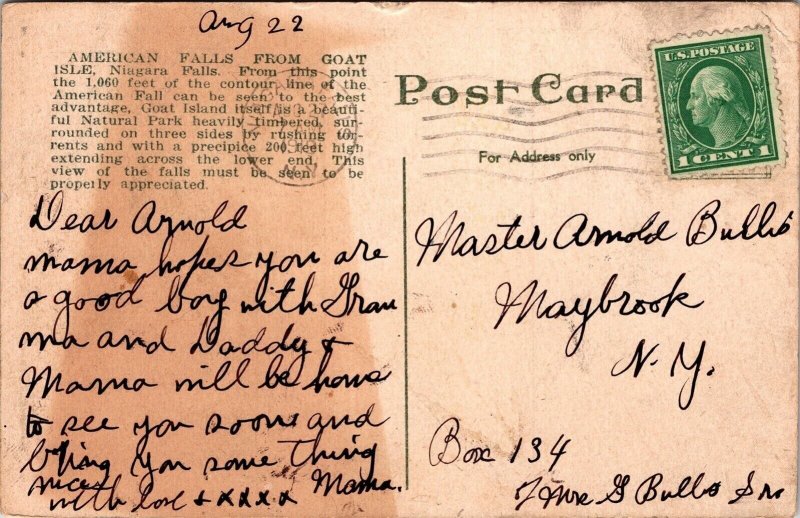 Aug 22
AMERICAN FALLS FROM GOAT
ISLE, Niagara Falls. From this point
the 1,060 feet of the contour line of the
American Fall can be seen to the best
advantage. Goat Island itself is a beauti-
ful Natural Park heavily timbered, sur-
rounded on three sides by rushing tor-
rents and with a precipice 200 feet high
extending across the lower end. This
view of the falls must be seen to be
properly appreciated.
Post Card
For Address only
U.S. POSTAGE
1 CENT 1
Dear Arnold
mama hopes you are
a good boy with Gran
ma and Daddy +
Mama will be home
to see you soon and
bring you some thing
nice
with love + xxxx Mama.
Master Arnold Bullis
Maybrook
N.Y.
Box 134
G Bullis